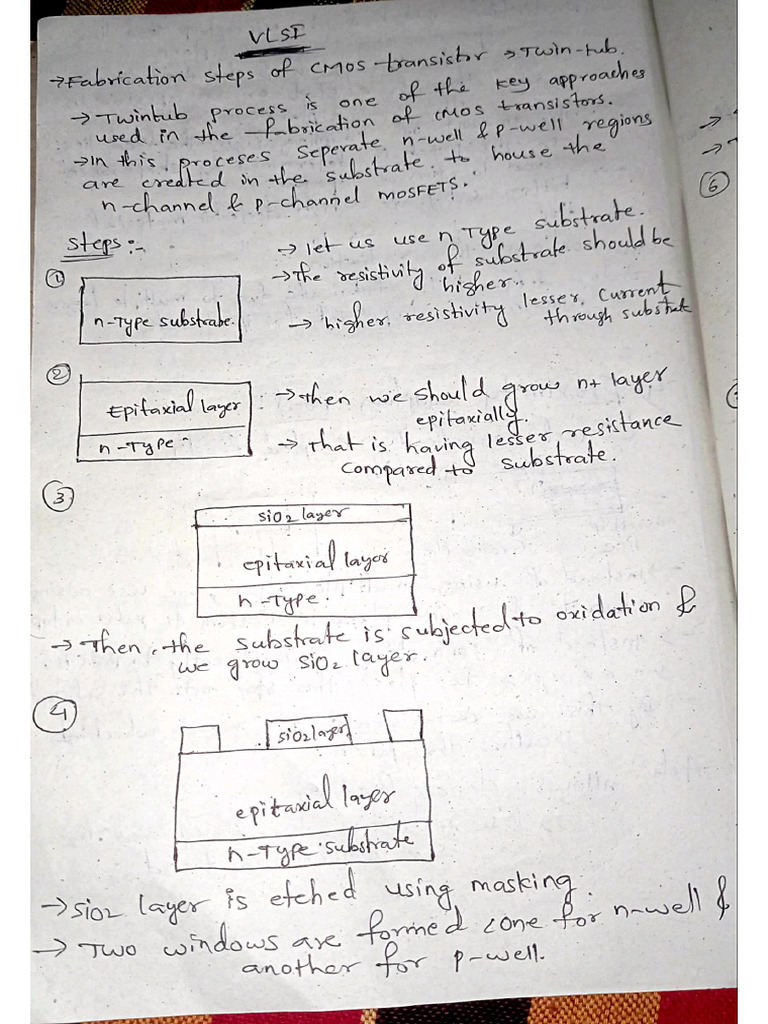 VLSI
→Fabrication steps of CMOS transistor → Twin-tub.
→ Twintub process is one of the key approaches
used in the fabrication of CMOS transistors.
→In this proceses Seperate n-well & p-well regions
are created in the substrate to house the
n-channel & p-channel MOSFETS.
Steps:-
①
n-Type substrate.
→ let us use n Type substrate.
→The resistivity of substrate should be
higher.
→ higher resistivity lesser current
through substrate
②
Epitaxial layer
n-Type
→Then we should grow n+ layer
epitaxially.
→ That is having lesser resistance
compared to substrate.
③
SiO2 layer
epitaxial layer
n-Type.
→ Then, the substrate is subjected to oxidation &
we grow SiO2 layer.
④
SiO2layer
epitaxial layer
n-Type substrate
→SiO2 layer is etched using masking.
→ Two windows are formed (one for n-well &
another for p-well.
⑥